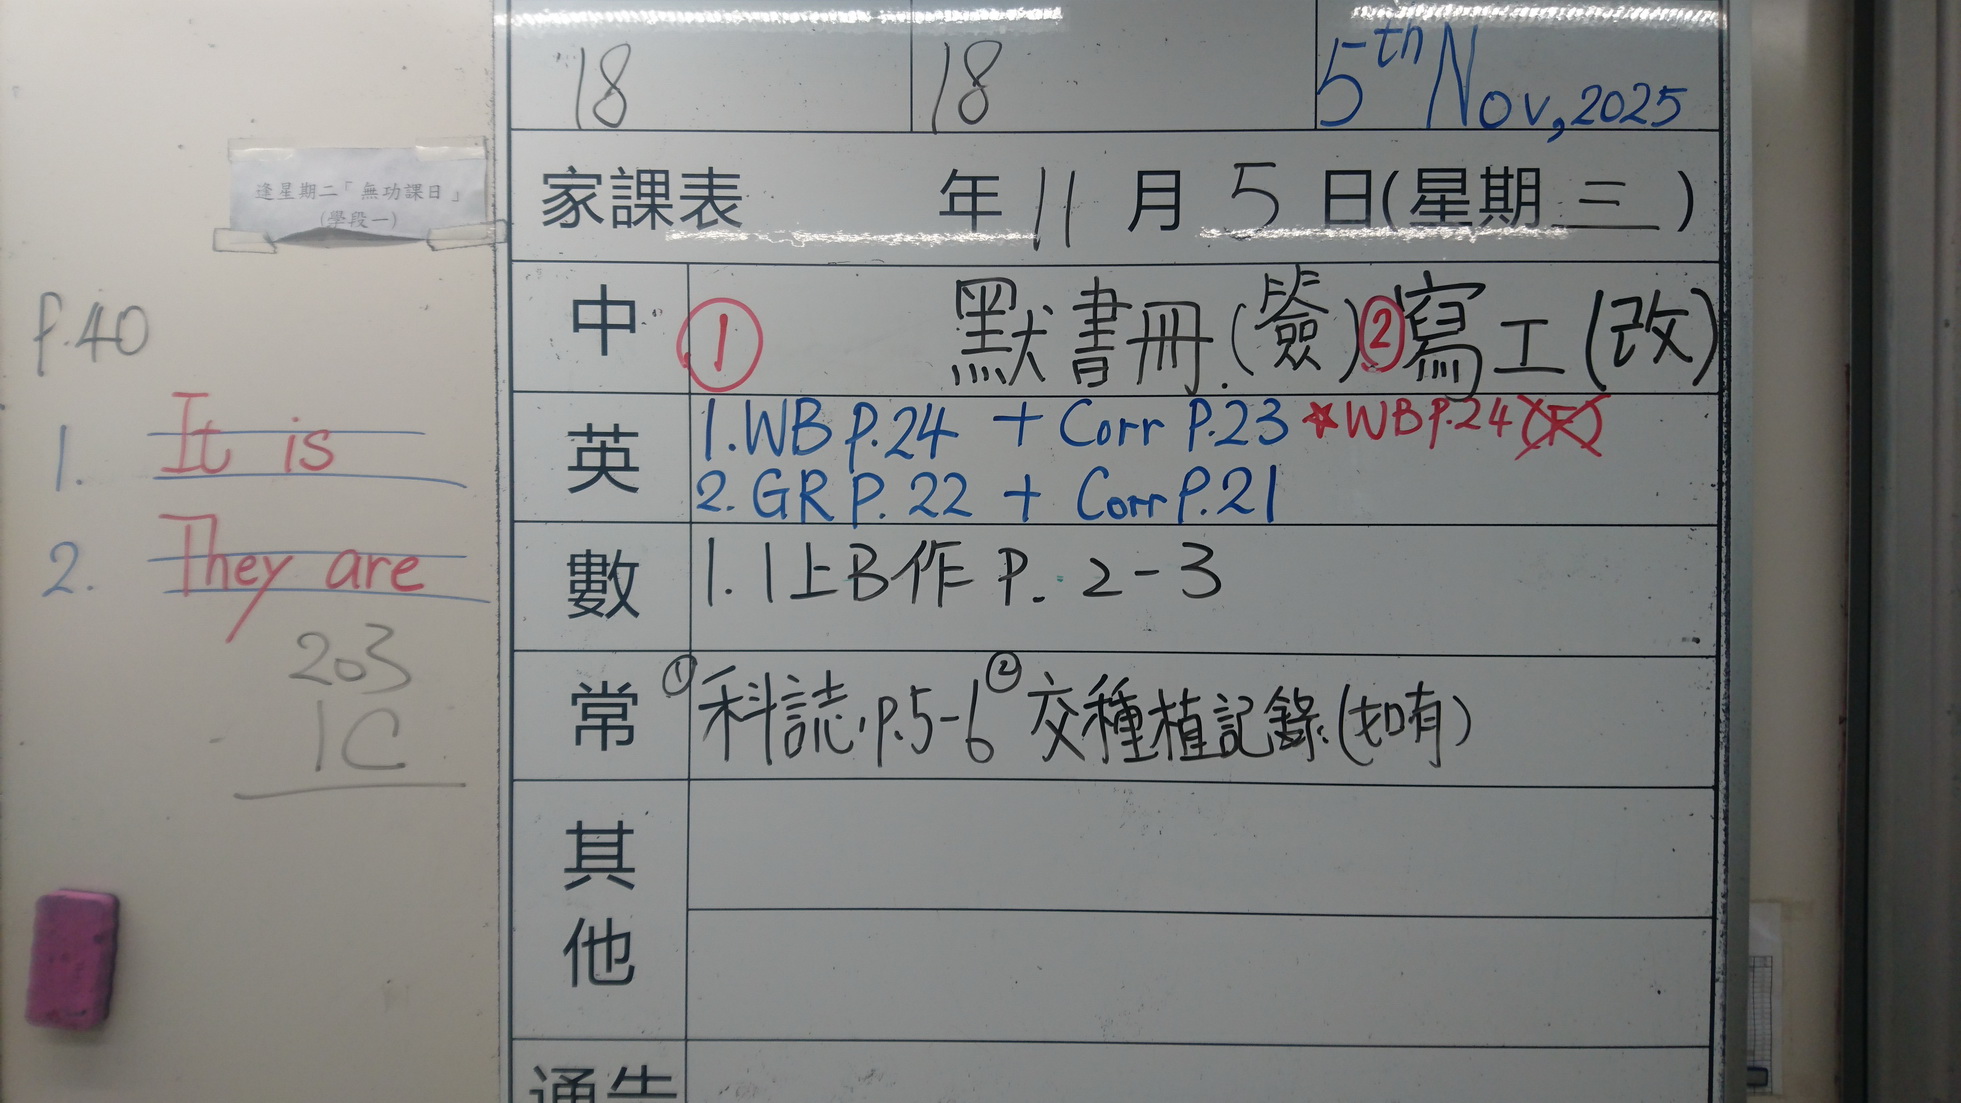 18 18 5th Nov, 2025
逢星期二「無功課日」
(學段一)
家課表 年 11 月 5 日(星期 三 )
中 ① 默書冊(簽)②寫工(改)
P.40
英 1. WB P.24 + Corr P.23 *WB P.24
2. GR P. 22 + Corr P.21
1. It is
2. They are
數 1. 1上B作 P. 2-3
203
1C
常 ①科誌 P.5-6 ②交種植記錄(如有)
其他
通告